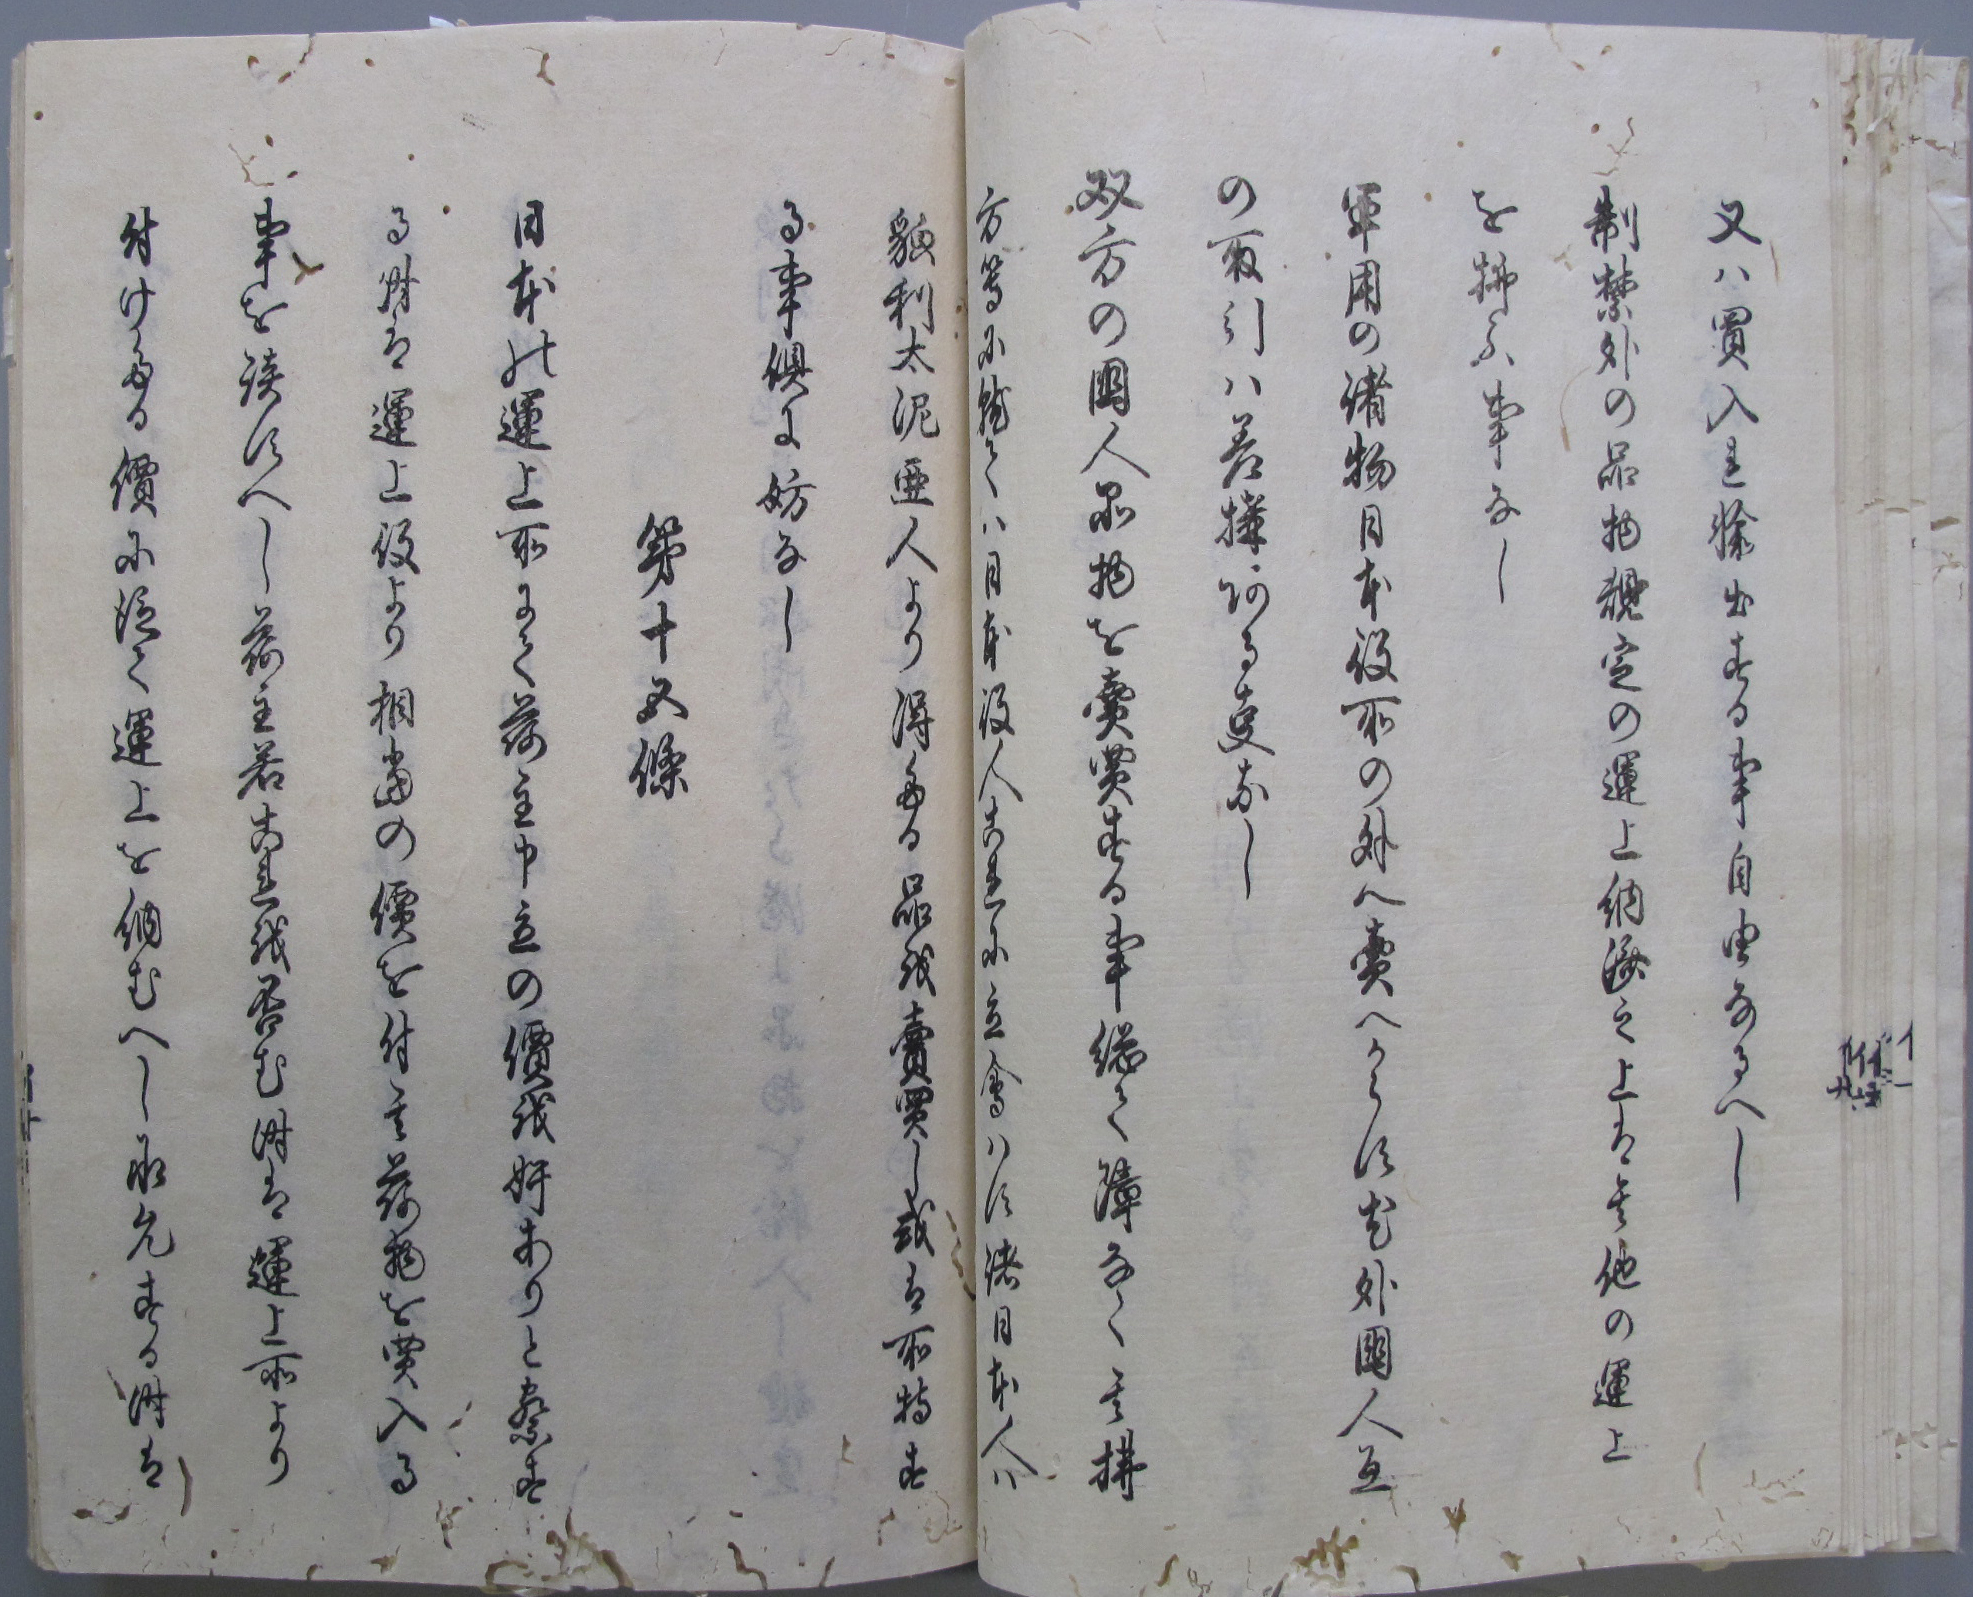 又ハ買入れ輸出する事自由なるへし
制禁外の品物規定の運上納済之上は其他の運上
を拂ふ事なし
軍用の諸物日本役所の外へ賣へからす尤外國人互
の取引ハ差構ある事なし
双方の國人品物を賣買する事總て障なく其拂
方等に就てハ日本役人これに立會ハす諸日本人ハ
貌利太泥亜人より得たる品を賣買し或は所持す
る事倶に妨なし
第十五條
日本の運上所にて荷主申立の價を奸ありと察す
る時は運上役より相當の價を付け其荷物を買入る
事を談すへし荷主若これを否む時は運上所より
付けたる價に従て運上を納むへし承允する時は